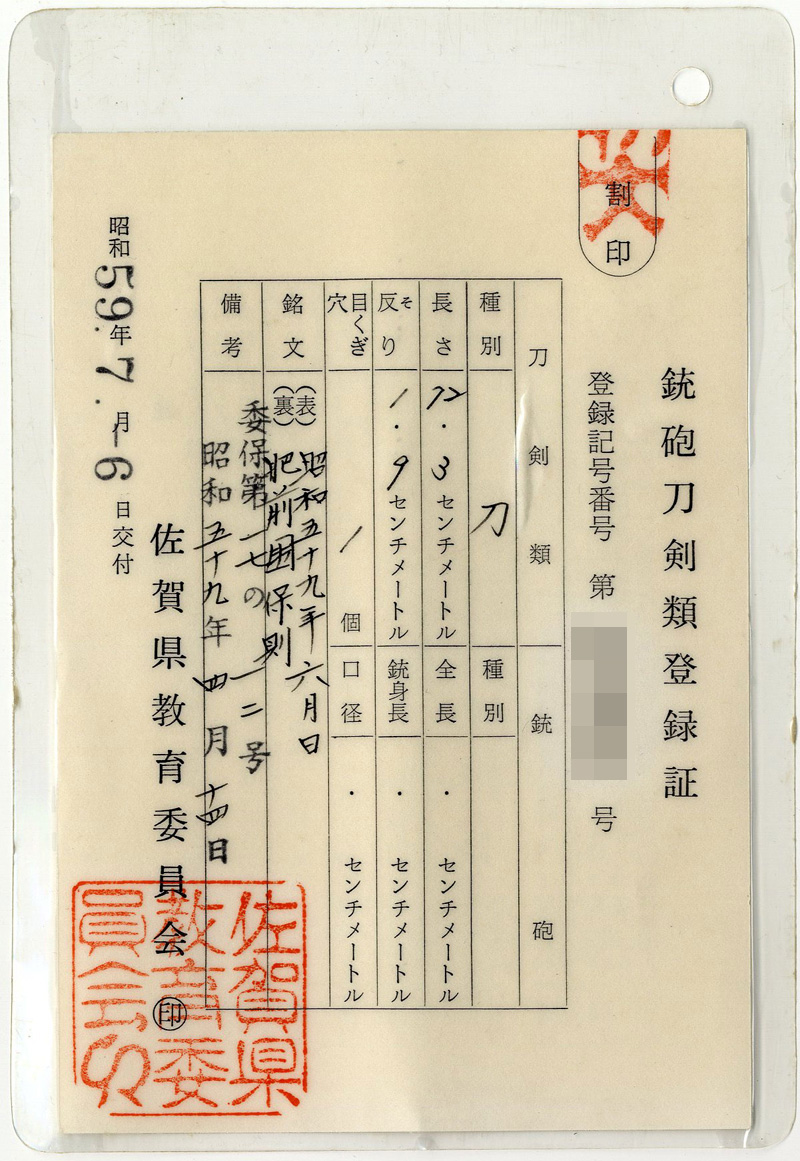 割印
銃砲刀剣類登録証
登録記号番号 第 号
刀剣類 銃砲
種別 刀 種別
長さ 72.3センチメートル 全長 ・センチメートル
反り そ 1.9センチメートル 銃身長 ・センチメートル
目くぎ穴 1個 口径 ・センチメートル
銘文 (表) 昭和五十九年六月日
(裏) 肥前國保則
備考 委保第一七の一二号
昭和五十九年四月十四日
佐賀県教育委員会 印
昭和59年7月-6日交付
佐賀県
教育委
員会